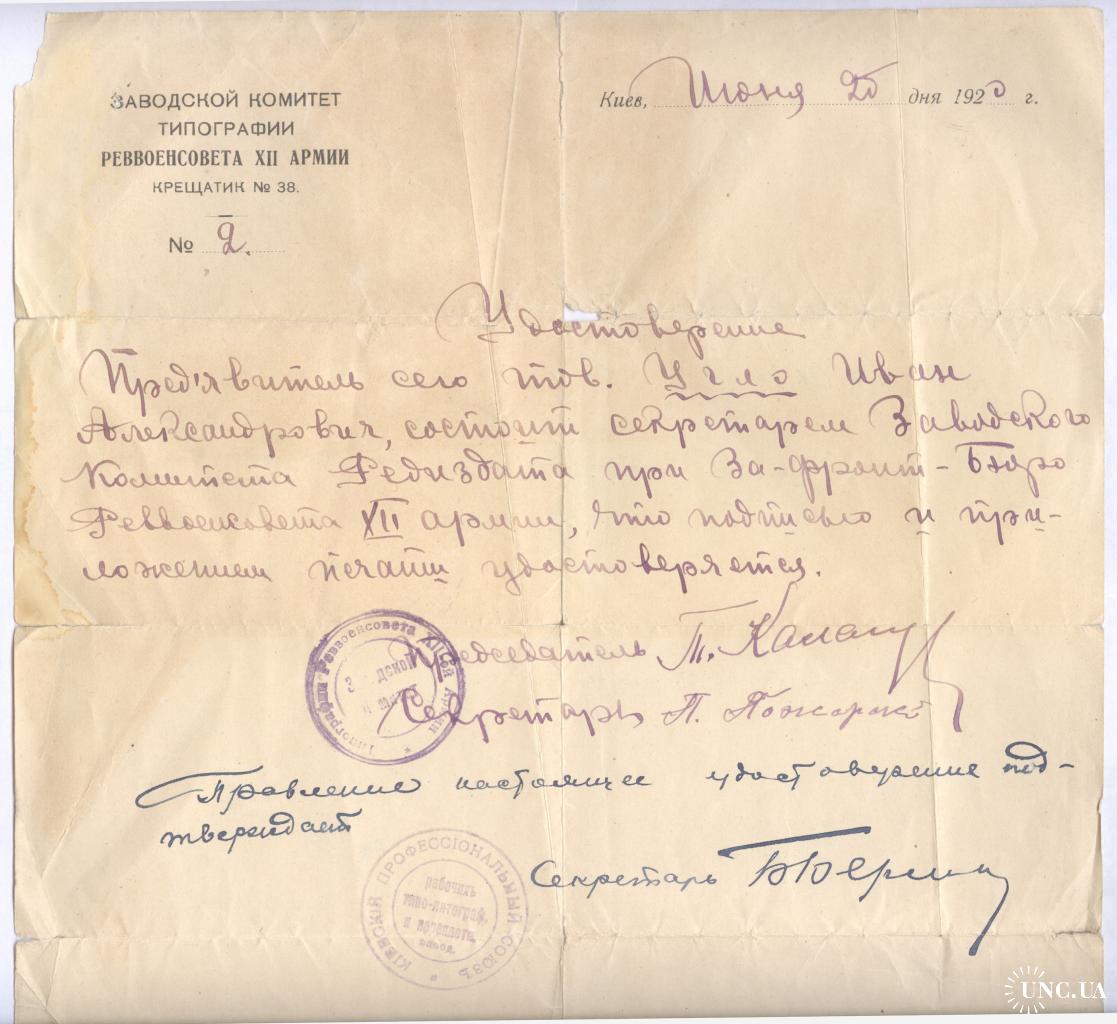 ЗАВОДСКОЙ КОМИТЕТ
ТИПОГРАФИИ
РЕВВОЕНСОВЕТА XII АРМИИ
КРЕЩАТИК № 38.
№ 2.
Киев, Июня 25 дня 1920 г.
Удостоверение
Пред'явитель сего тов. Угло Иван
Александрович, состоит секретарем Заводского
Комитета Редиздата при За-фронт-Бюро
Реввоенсовета XII армии, что подписью и при-
ложением печати удостоверяется.
Председатель Т.
Секретарь П.
Типографии Реввоенсовета XII-ой Армии
Правление настоящее удостоверение под-
тверждает
Секретарь
КІЕВСКІЙ ПРОФЕССІОНАЛЬНЫЙ СОЮЗЪ
рабочихъ
типо-литограф.
и переплетн.
завод.
UNC.UA